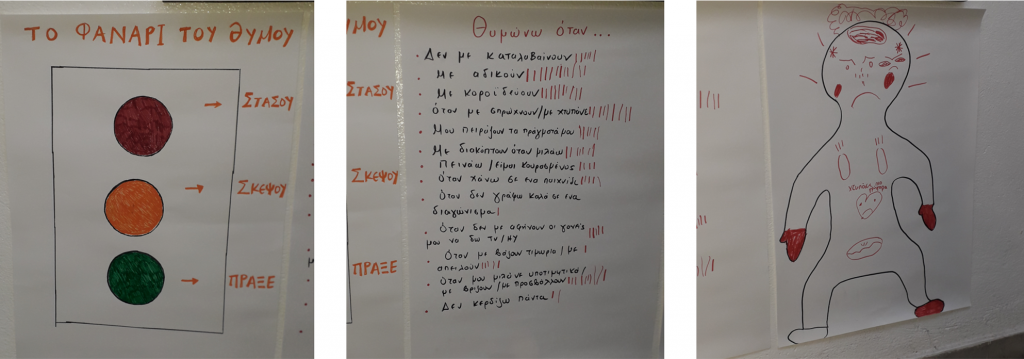 ΤΟ ΦΑΝΑΡΙ ΤΟΥ ΘΥΜΟΥ
→ ΣΤΑΣΟΥ
→ ΣΚΕΨΟΥ
→ ΠΡΑΞΕ
ΥΜΟΥ
ΣΤΑΣΟΥ
ΣΚΕΨΟΥ
ΠΡΑΞΕ
Θυμώνω όταν...
• Δεν με καταλαβαίνουν
• Με αδικούν
• Με κοροϊδεύουν
• Όταν με σπρώχνουν/με χτυπάνε
• Μου πειράζουν τα πράγματά μου
• Με διακόπτουν όταν μιλάω
• Πεινάω/είμαι κουρασμένος
• Όταν χάνω σε ένα παιχνίδι
• Όταν δεν γράφω καλά σε ένα
διαγώνισμα
• Όταν δεν με αφήνουν οι γονείς
μου να δω TV/ΗΥ
• Όταν με βάζουν τιμωρία/με
απειλούν
• Όταν μου μιλάνε υποτιμητικά/
με βρίζουν/με προσβάλλουν
• Δεν κερδίζω πάντα